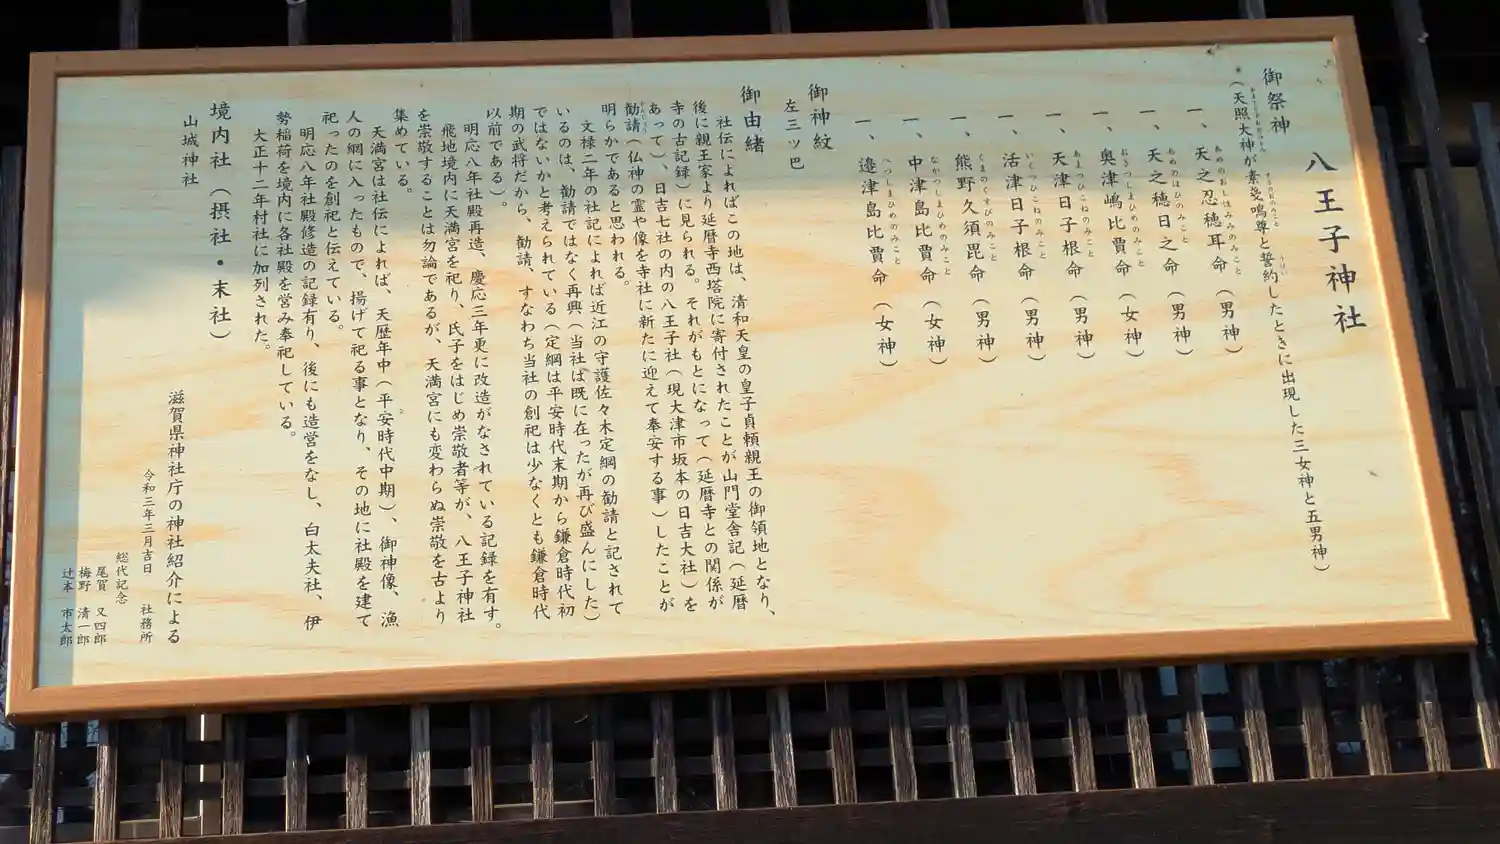 八王子神社
御祭神
（天照大神が素戔嗚尊と誓約したときに出現した三女神と五男神）
一、天之忍穂耳命（男神）
一、天之穂日之命（男神）
一、奥津嶋比賣命（女神）
一、天津日子根命（男神）
一、活津日子根命（男神）
一、熊野久須毘命（男神）
一、中津島比賣命（女神）
一、邉津島比賣命（女神）
御神紋
左三ツ巴
御由緒
社伝によればこの地は、清和天皇の皇子貞頼親王の御領地となり、
後に親王家より延暦寺西塔院に寄付されたことが山門堂舎記（延暦
寺の古記録）に見られる。それがもとになって（延暦寺との関係が
あって）、日吉七社の内の八王子社（現大津市坂本の日吉大社）を
勧請（仏神の霊や像を寺社に新たに迎えて奉安する事）したことが
明らかであると思われる。
文禄二年の社記によれば近江の守護佐々木定綱の勧請と記されて
いるのは、勧請ではなく再興（当社は既に在ったが再び盛んにした）
ではないかと考えられている（定綱は平安時代末期から鎌倉時代初
期の武将だから、勧請、すなわち当社の創祀は少なくとも鎌倉時代
以前である）。
明応八年社殿再造、慶応三年更に改造がなされている記録を有す。
飛地境内に天満宮を祀り、氏子をはじめ崇敬者等が、八王子神社
を崇敬することは勿論であるが、天満宮にも変わらぬ崇敬を古より
集めている。
天満宮は社伝によれば、天歴年中（平安時代中期）、御神像、漁
人の網に入ったもので、揚げて祀る事となり、その地に社殿を建て
祀ったのを創祀と伝えている。
明応八年社殿修造の記録有り、後にも造営をなし、白太夫社、伊
勢稲荷を境内に各社殿を営み奉祀している。
大正十二年村社に加列された。
境内社（摂社・末社）
山城神社
滋賀県神社庁の神社紹介による
令和三年三月吉日　社務所
総代記念
尾賀　又四郎
梅野　清一郎
辻本　市太郎